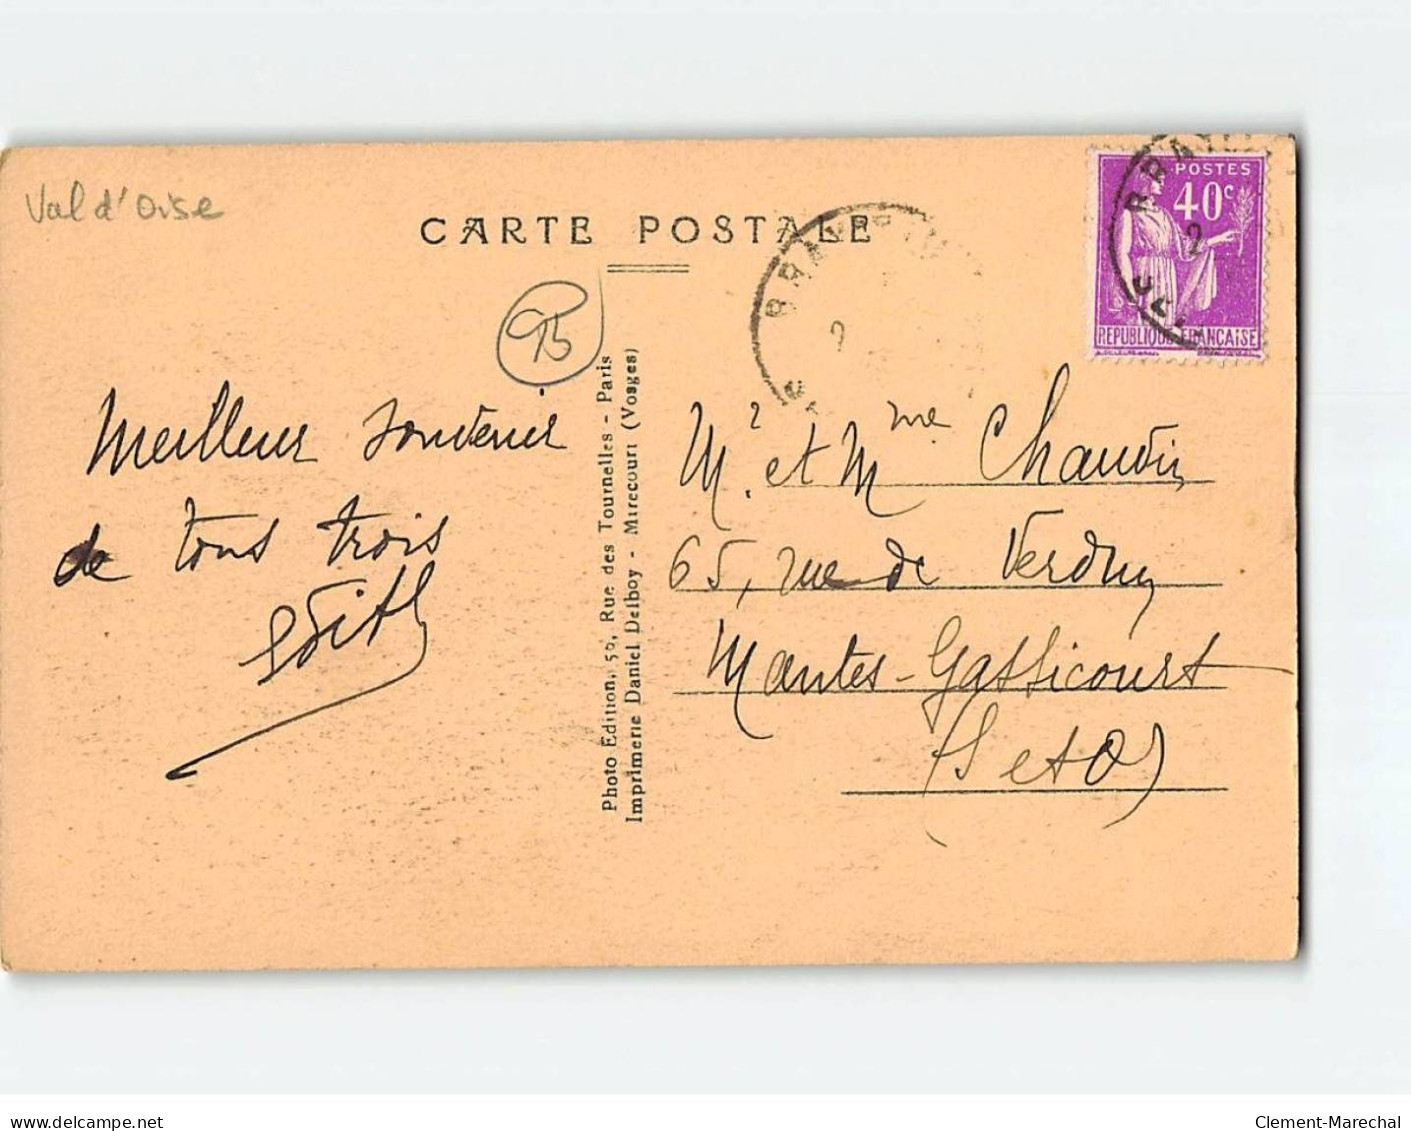 Val d'Oise
CARTE POSTALE
95
POSTES
40c
REPUBLIQUE FRANÇAISE
2
2
Meilleur souvenir
de tous trois
Edith
Photo Edition, 50, Rue des Tournelles - Paris
Imprimerie Daniel Delboy - Mirecourt (Vosges)
Mr. et Mme Chauvin
65, rue de Verdun
Mantes-Gassicourt
(S et O)
delcampe.net
Clement-Marechal